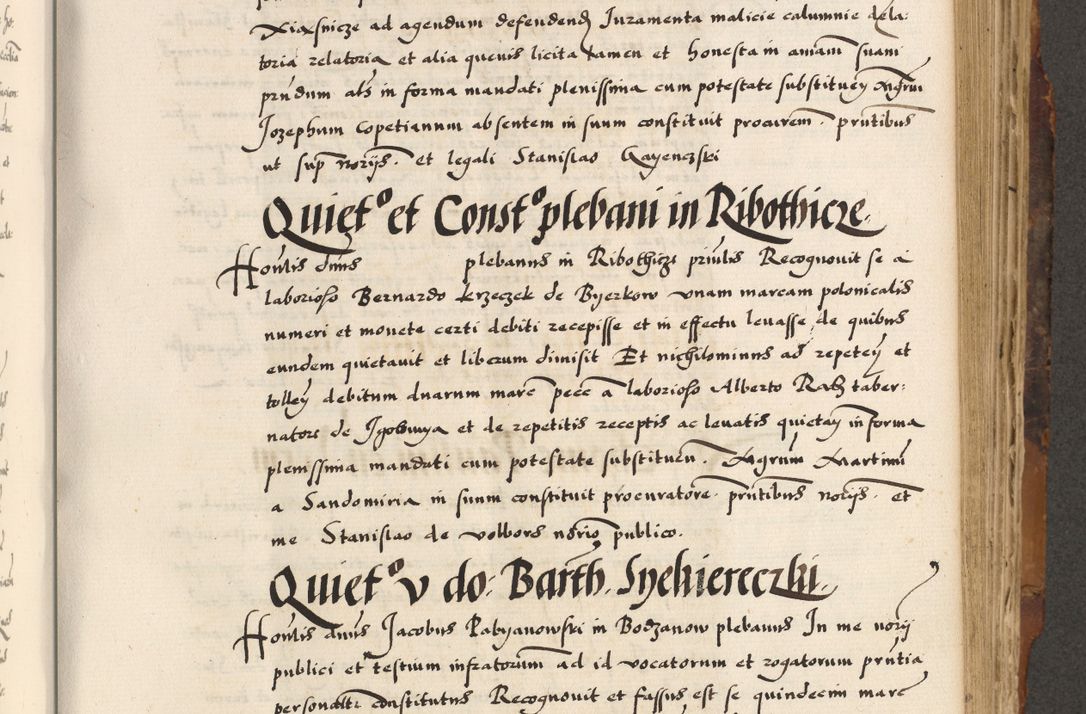 Xiasnicze ad agendum defendend Juramenta malicie calumnie dela:
toria relatoria et alia quevis licita tamen et honesta in animam suam
prñdum als in forma mandati plenissima cum potestate substituen Mgrum
Jozephum Copetianum absentem in suum constituit procurem. pruntibus
ut sup norijs. et legali Stanislao Gayenczski
Quiet° et Const° plebani in Ribothicze.
Honlis dnus plebanus in Ribothicze priulis Recognouit se a
laborioso Bernardo krzeczek de Byerkow vnam marcam polonicalis
numeri et monete certi debiti recepisse et in effectu leuasse, de quibus
eundem quietauit et liberum dimisit Et nichilominus ad repeten et
tollen debitum duarum marc pecc a laborioso Alberto Rab taber:
natore de Jgolomya et de repetitis receptis ac leuatis quietan in forma
plenissima mandati cum potestate substituen. Mgrum Martinum
a Sandomiria in suum constituit procuratore. pruntibus norijs. et
me Stanislao de volbors norio publico.
Quiet° v do: Barth. Syekiereczki.
Honlis dnus Jacobus Rabyanowski in Bodzanow plebanus In me norij
publici et testium infratorum ad id vocatorum et rogatorum pruntia
personaltr constitutus Recognouit et fassus est se quindecim marc